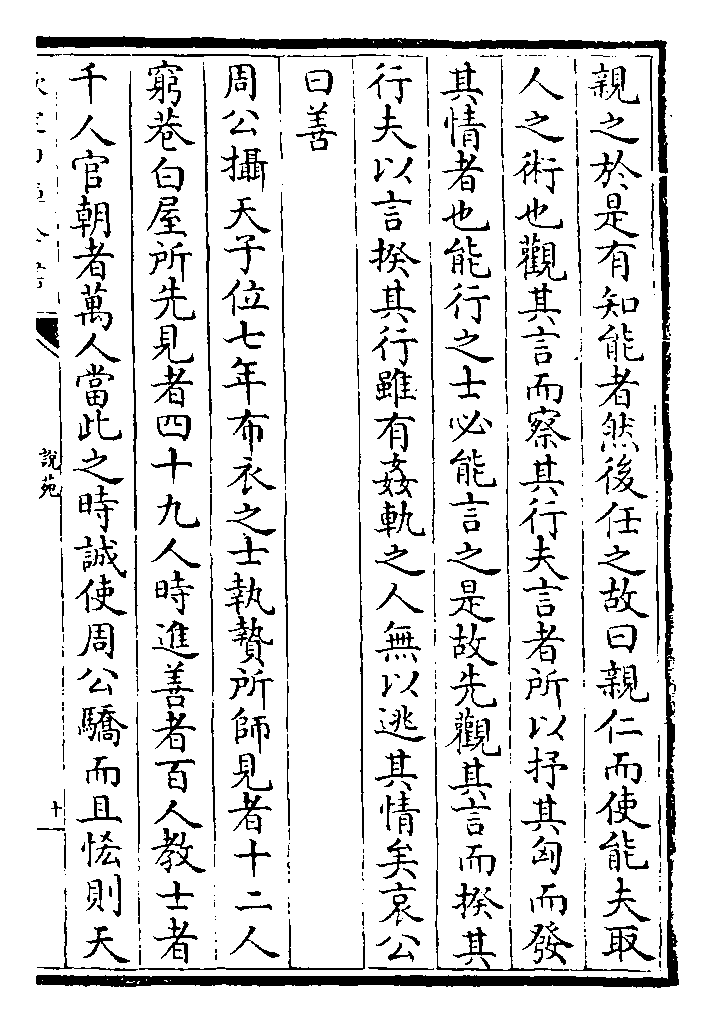 親之於是有知能者然後任之故曰親仁而使能夫取
人之術也觀其言而察其行夫言者所以抒其匈而發
其情者也能行之士必能言之是故先觀其言而揆其
行夫以言揆其行雖有姦軌之人無以逃其情矣哀公
曰善
周公攝天子位七年布衣之士執贄所師見者十二人
窮巷白屋所先見者四十九人時進善者百人教士者
千人官朝者萬人當此之時誠使周公驕而且恡則天
說苑
十